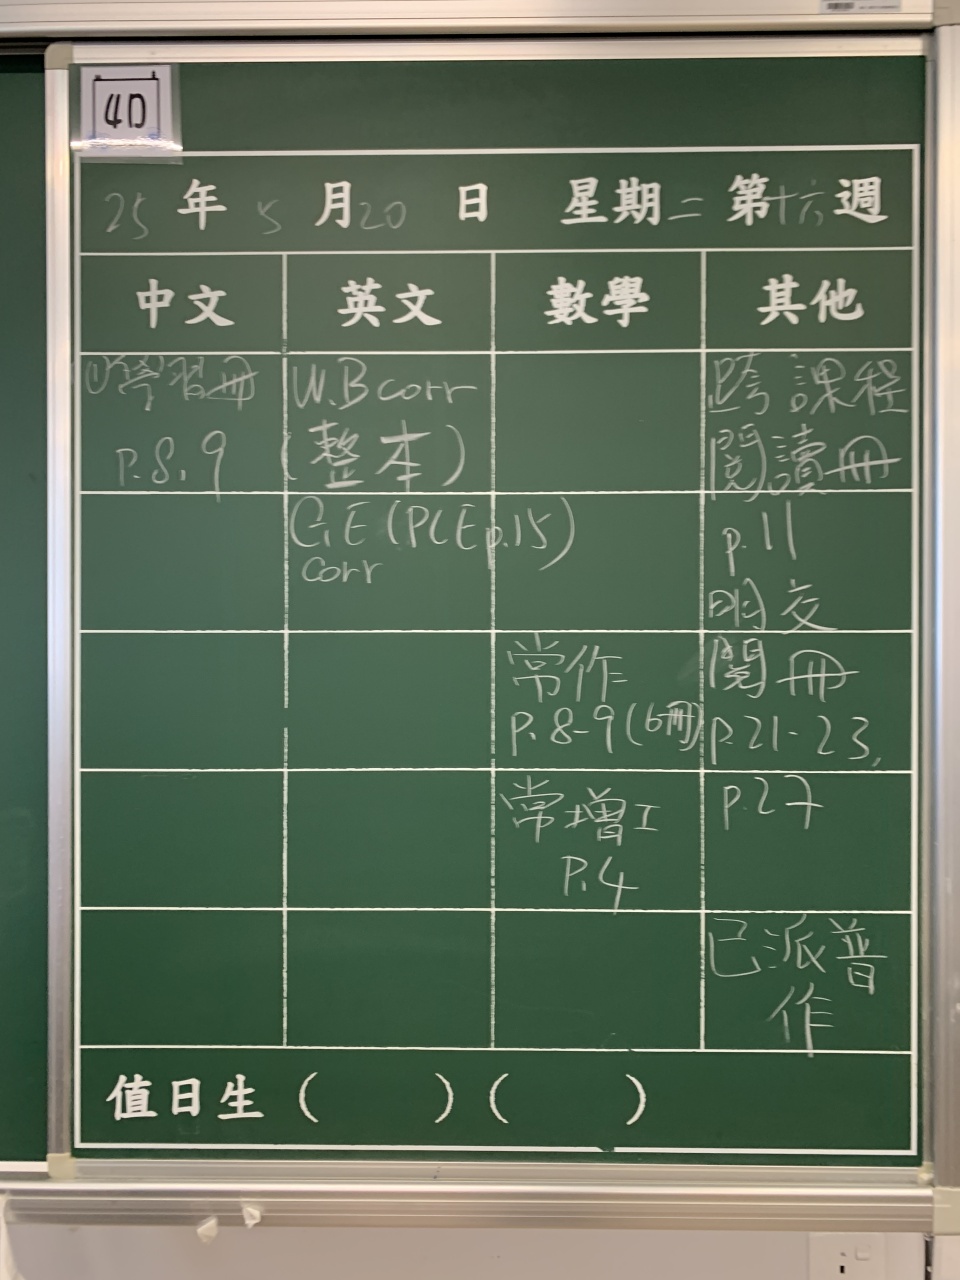 4D
25 年 5 月 20 日 星期二 第十六週
中文 英文 數學 其他
①學習冊
p.8,9
W.B corr
(整本)
G.E (PCE p.15)
corr
常作
p.8-9 (6冊)
常增工
P.4
跨課程
閱讀冊
p.11
明交
閱冊
p.21-23,
p.27
已派普
作
值日生 ( ) ( )